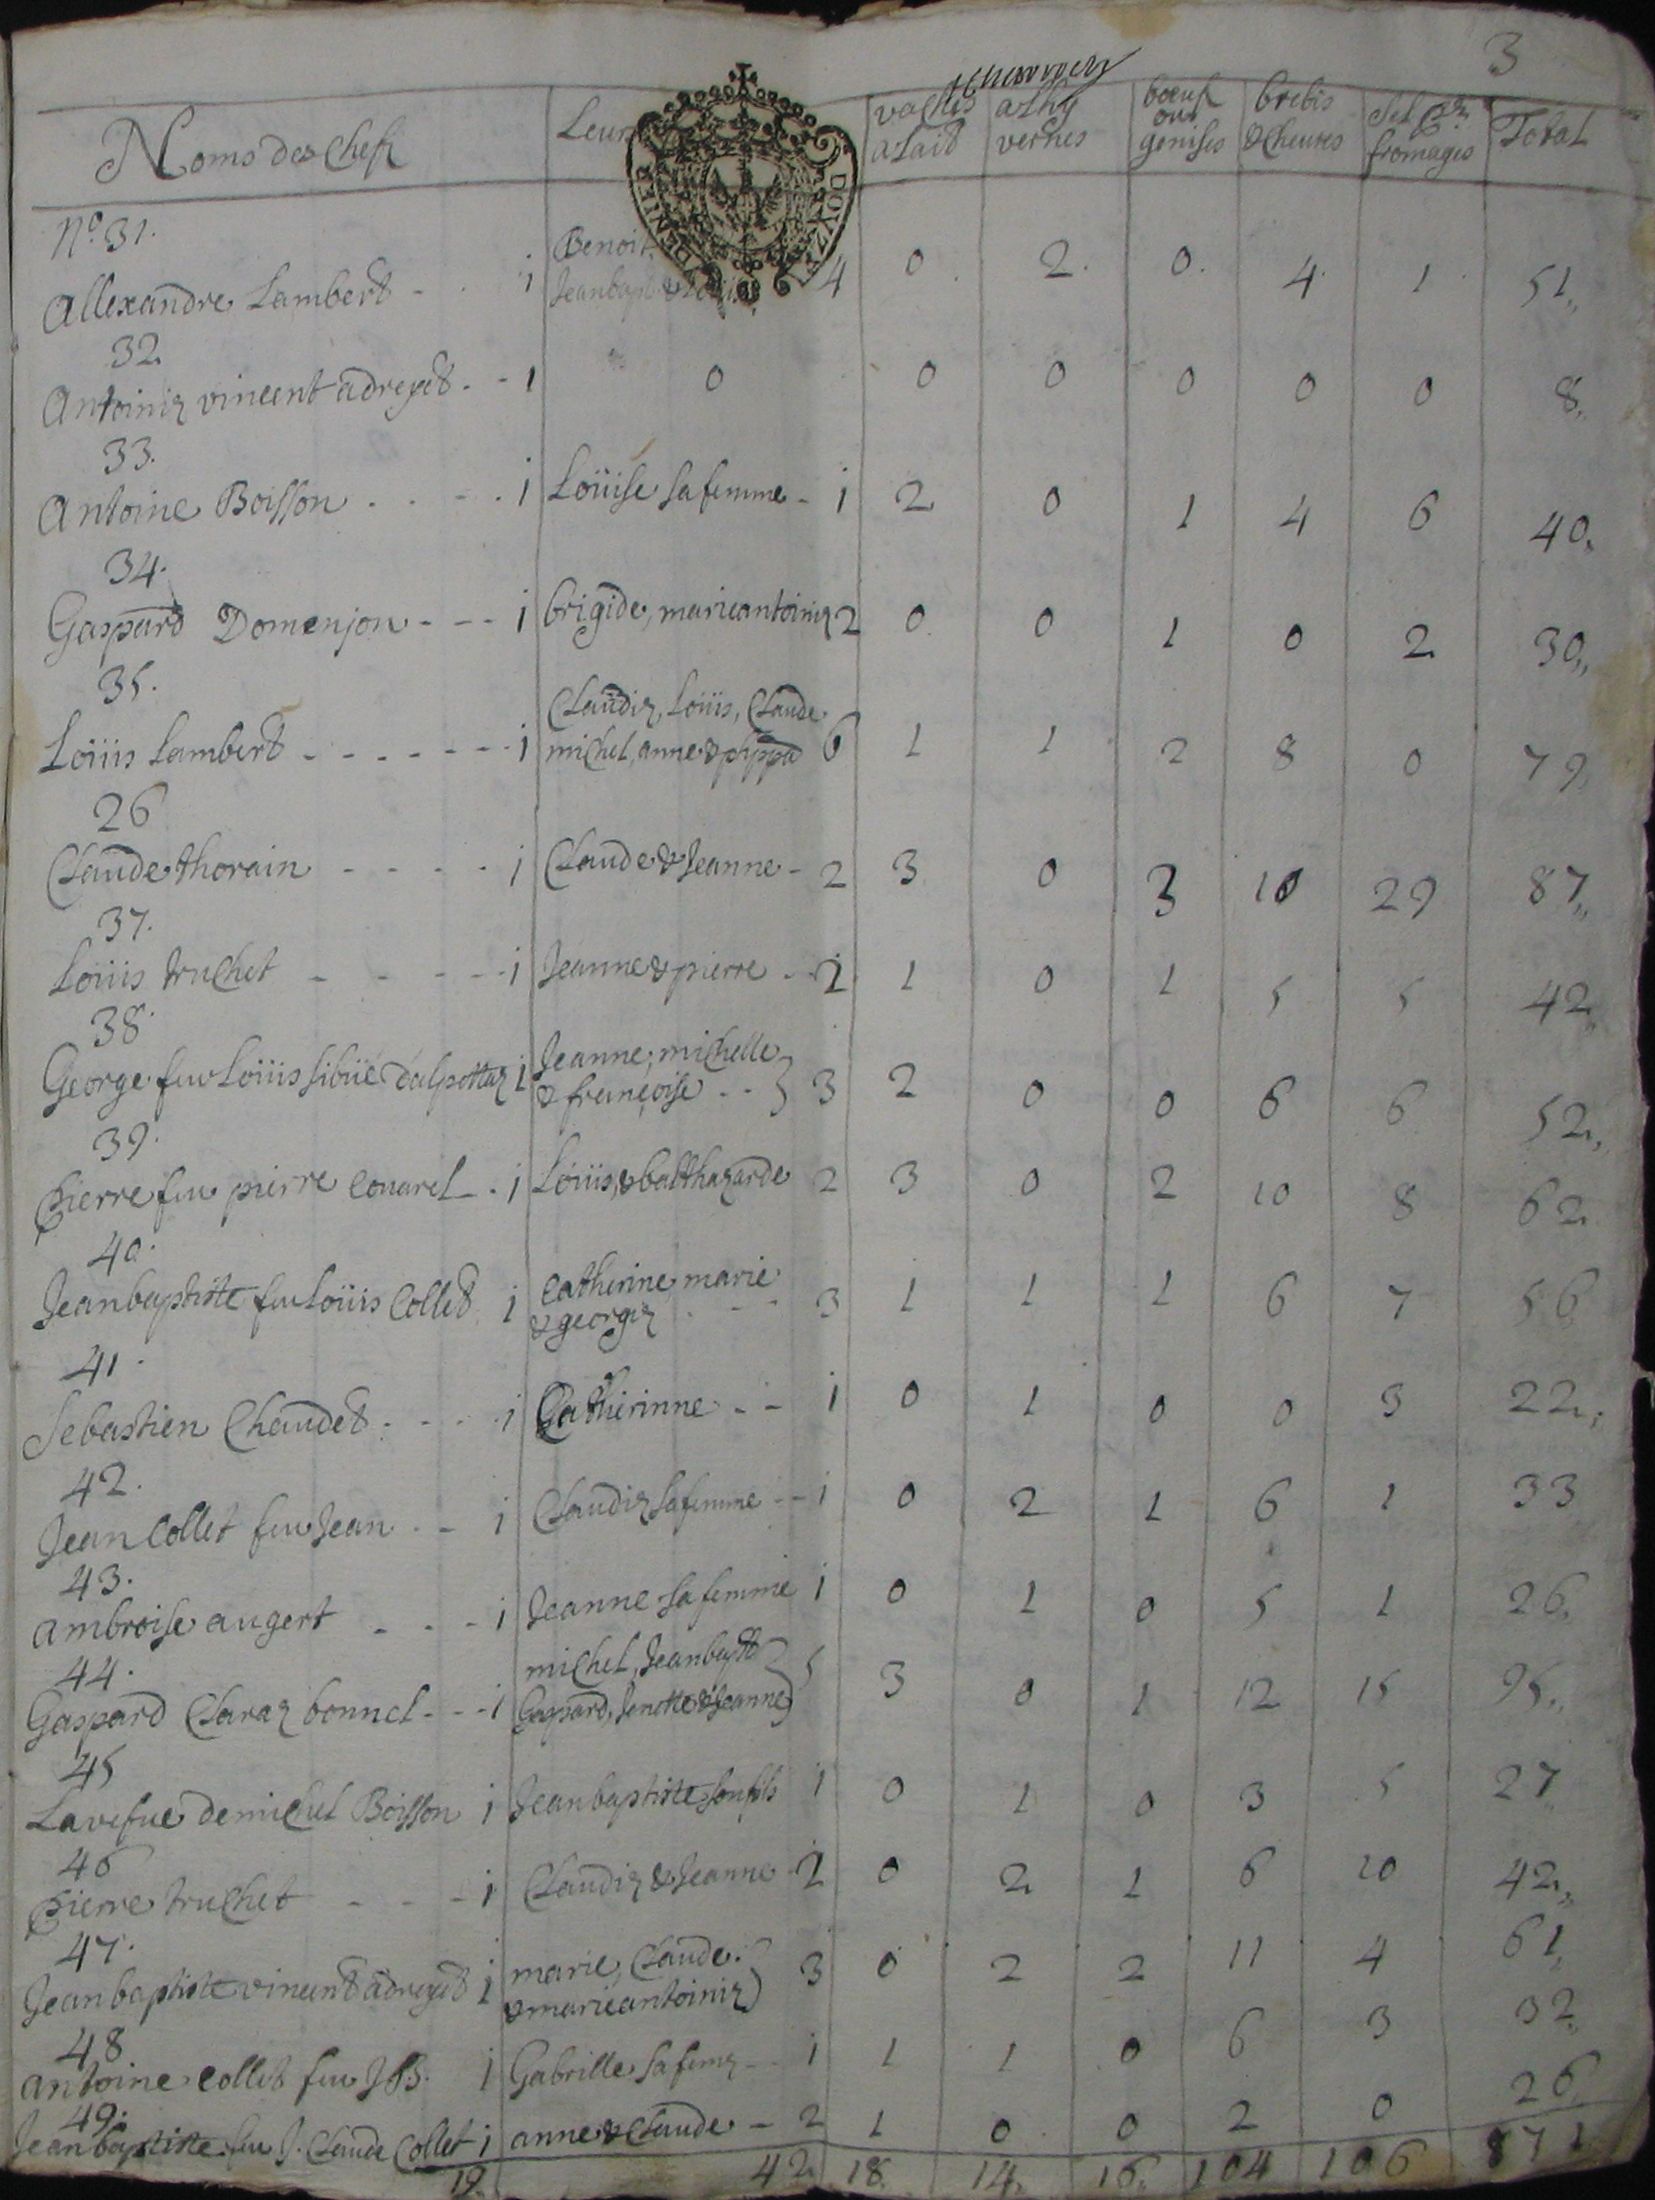 3
Noms des Chefs Leurs vaches a lait a Lhy vernes boeufs ou genises brebis & cheures Sel pr fromages Total
DENIER DOUZE
No. 31.
Allexandre Lambert - . 1 Benoit, Jeanbapt & 4 0 . 2 . 0 . 4 . 1 . 51,,
32
Antoiniz vincent adreyet . - 1 0 0 0 0 0 0 8,,
33.
Antoine Boisson . . - . 1 Loüise sa femme - 1 2 0 1 4 6 40,,
34.
Gaspard Domenjon - - - 1 brigide, marieantoiniz 2 0 0 1 0 2 30,,
35.
Loüis Lambert - - - - - - - 1 Claudiz, Loüis, Claude
michel, anne & phppa 6 1 1 2 8 0 79
26
Claude thorain - - - - . 1 Claude & Jeanne - 2 3 0 3 10 29 87,,
37.
Loüis truchet - - - - - 1 Jeanne & pierre - 2 1 0 1 5 5 42,,
38.
George feu Loüis sibüé dalpettaz 1 Jeanne, michelle
& françoise . - } 3 2 0 0 6 6 52,,
39.
pierre feu pierre Couarel - . 1 Loüis, & balthazarde 2 3 0 2 10 8 62
40.
Jeanbaptiste feu Loüis Collet 1 Catherine, marie
& georgiz . - - 3 1 1 1 6 7 56
41.
Sebastien Chaudet . - - . 1 Catherinne - - 1 0 1 0 0 3 22,,
42.
Jean Collet feu Jean . - 1 Claudiz sa femme - - 1 0 2 1 6 1 33
43.
ambroise augert - - - 1 Jeanne sa femme 1 0 1 0 5 1 26,,
44.
Gaspard Claraz bonnel - - - 1 michel, Jeanbapt
Gaspard, Jenette & Jeanne } 5 3 0 1 12 15 95,,
45
La vefue de michel Boisson 1 Jeanbaptiste son fils 1 0 1 0 3 5 27
46
pierre truchet - - - 1 Claudiz & Jeanne 2 0 2 1 6 10 42,,
47.
Jeanbaptiste vincent adreyet 1 marie, Claude
& marie antoiniz } 3 0 2 2 11 4 61,
48
antoine Collet feu J B. 1 Gabrille sa femz - . 1 1 1 0 6 3 32,,
49.
Jeanbaptiste feu J. Claude Collet 1 anne & Claude - 2 1 0 0 2 0 26
19. 42 18 14. 16. 104 106 871